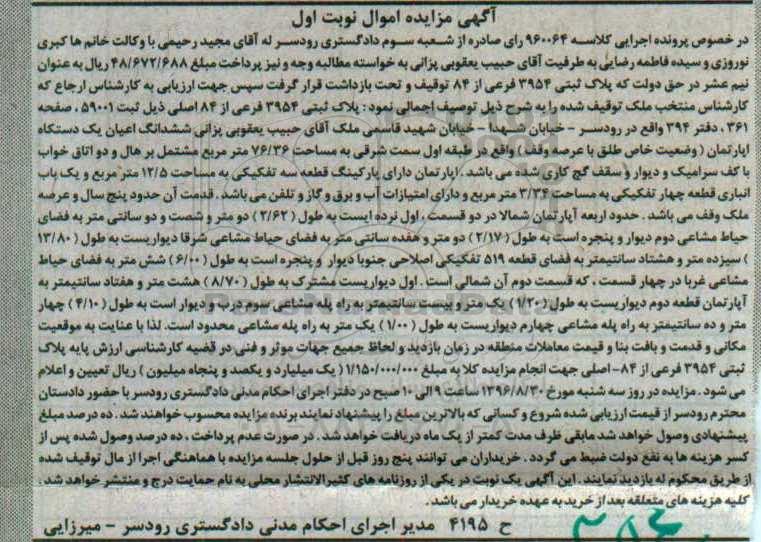 آگهی مزایده اموال نوبت اول
در خصوص پرونده اجرایی کلاسه ۹۶۰۰۶۴ رای صادره از شعبه سوم دادگستری رودسر له آقای مجید رحیمی با وکالت خانم ها کبری
نوروزی و سیده فاطمه رضایی به طرفیت آقای حبیب یعقوبی پزانی به خواسته مطالبه وجه و نیز پرداخت مبلغ ۴۸/۶۷۲/۶۸۸ ریال به عنوان
نیم عشر در حق دولت که پلاک ثبتی ۳۹۵۴ فرعی از ۸۴ توقیف و تحت بازداشت قرار گرفت سپس جهت ارزیابی به کارشناس ارجاع که
کارشناس منتخب ملک توقیف شده را به شرح ذیل توصیف اجمالی نمود : پلاک ثبتی ۳۹۵۴ فرعی از ۸۴ اصلی ذیل ثبت ۵۹۰۰۱ ، صفحه
۳۶۱ ، دفتر ۳۹۴ واقع در رودسر – خیابان شهدا – خیابان شهید قاسمی ملک آقای حبیب یعقوبی پزانی ششدانگ اعیان یک دستگاه
اپارتمان ( وضعیت خاص طلق با عرصه وقف ) واقع در طبقه اول سمت شرقی به مساحت ۷۶/۳۶ متر مربع مشتمل بر هال و دو اتاق خواب
با کف سرامیک و دیوار و سقف گچ کاری شده می باشد . اپارتمان دارای پارکینگ قطعه سه تفکیکی به مساحت ۱۲/۵ متر مربع و یک باب
انباری قطعه چهار تفکیکی به مساحت ۳/۳۴ متر مربع و دارای امتیازات آب و برق و گاز و تلفن می باشد . قدمت آن حدود پنج سال و عرصه
ملک وقف می باشد . حدود اربعه آپارتمان شمالا در دو قسمت ، اول نرده ایست به طول ( ۲/۶۲ ) دو متر و شصت و دو سانتی متر به فضای
حیاط مشاعی دوم دیوار و پنجره است به طول ( ۲/۱۷ ) دو متر و هفده سانتی متر به فضای حیاط مشاعی شرقا دیواریست به طول ( ۱۳/۸۰
) سیزده متر و هشتاد سانتیمتر به فضای قطعه ۵۱۹ تفکیکی اصلاحی جنوبا دیوار و پنجره است به طول ( ۶/۰۰ ) شش متر به فضای حیاط
مشاعی غربا در چهار قسمت ، که قسمت دوم آن شمالی است . اول دیواریست مشترک به طول ( ۸/۷۰ ) هشت متر و هفتاد سانتیمتر به
آپارتمان قطعه دوم دیواریست به طول ( ۱/۲۰ ) یک متر و بیست سانتیمتر به راه پله مشاعی سوم درب و دیوار است به طول ( ۴/۱۰ ) چهار
متر و ده سانتیمتر به راه پله مشاعی چهارم دیواریست به طول ( ۱/۰۰ ) یک متر به راه پله مشاعی محدود است. لذا با عنایت به موقعیت
مکانی و قدمت و بافت بنا و قیمت معاملات منطقه در زمان بازدید و لحاظ جمیع جهات موثر و فنی در قضیه کارشناسی ارزش پایه پلاک
ثبتی ۳۹۵۴ فرعی از ۸۴- اصلی جهت انجام مزایده کلا به مبلغ ۱/۱۵۰/۰۰۰/۰۰۰ ( یک میلیارد و یکصد و پنجاه میلیون ) ریال تعیین و اعلام
می شود . مزایده در روز سه شنبه مورخ ۱۳۹۶/۸/۳۰ ساعت ۹ الی ۱۰ صبح در دفتر اجرای احکام مدنی دادگستری رودسر با حضور دادستان
محترم رودسر از قیمت ارزیابی شده شروع و کسانی که بالاترین مبلغ را پیشنهاد نمایند برنده مزایده محسوب خواهند شد . ده درصد مبلغ
پیشنهادی وصول خواهد شد مابقی ظرف مدت کمتر از یک ماه دریافت خواهد شد . در صورت عدم پرداخت ، ده درصد وصول شده پس از
کسر هزینه ها به نفع دولت ضبط می گردد . خریداران می توانند پنج روز قبل از حلول جلسه مزایده با هماهنگی اجرا از مال توقیف شده
از طریق محکوم له بازدید نمایند . این آگهی یک نوبت در یکی از روزنامه های کثیرالانتشار محلی به نام حمایت درج و منتشر خواهد شد .
کلیه هزینه های متعلقه بعد از خرید به عهده خریدار می باشد .
ح ۴۱۹۵ مدیر اجرای احکام مدنی دادگستری رودسر – میرزایی